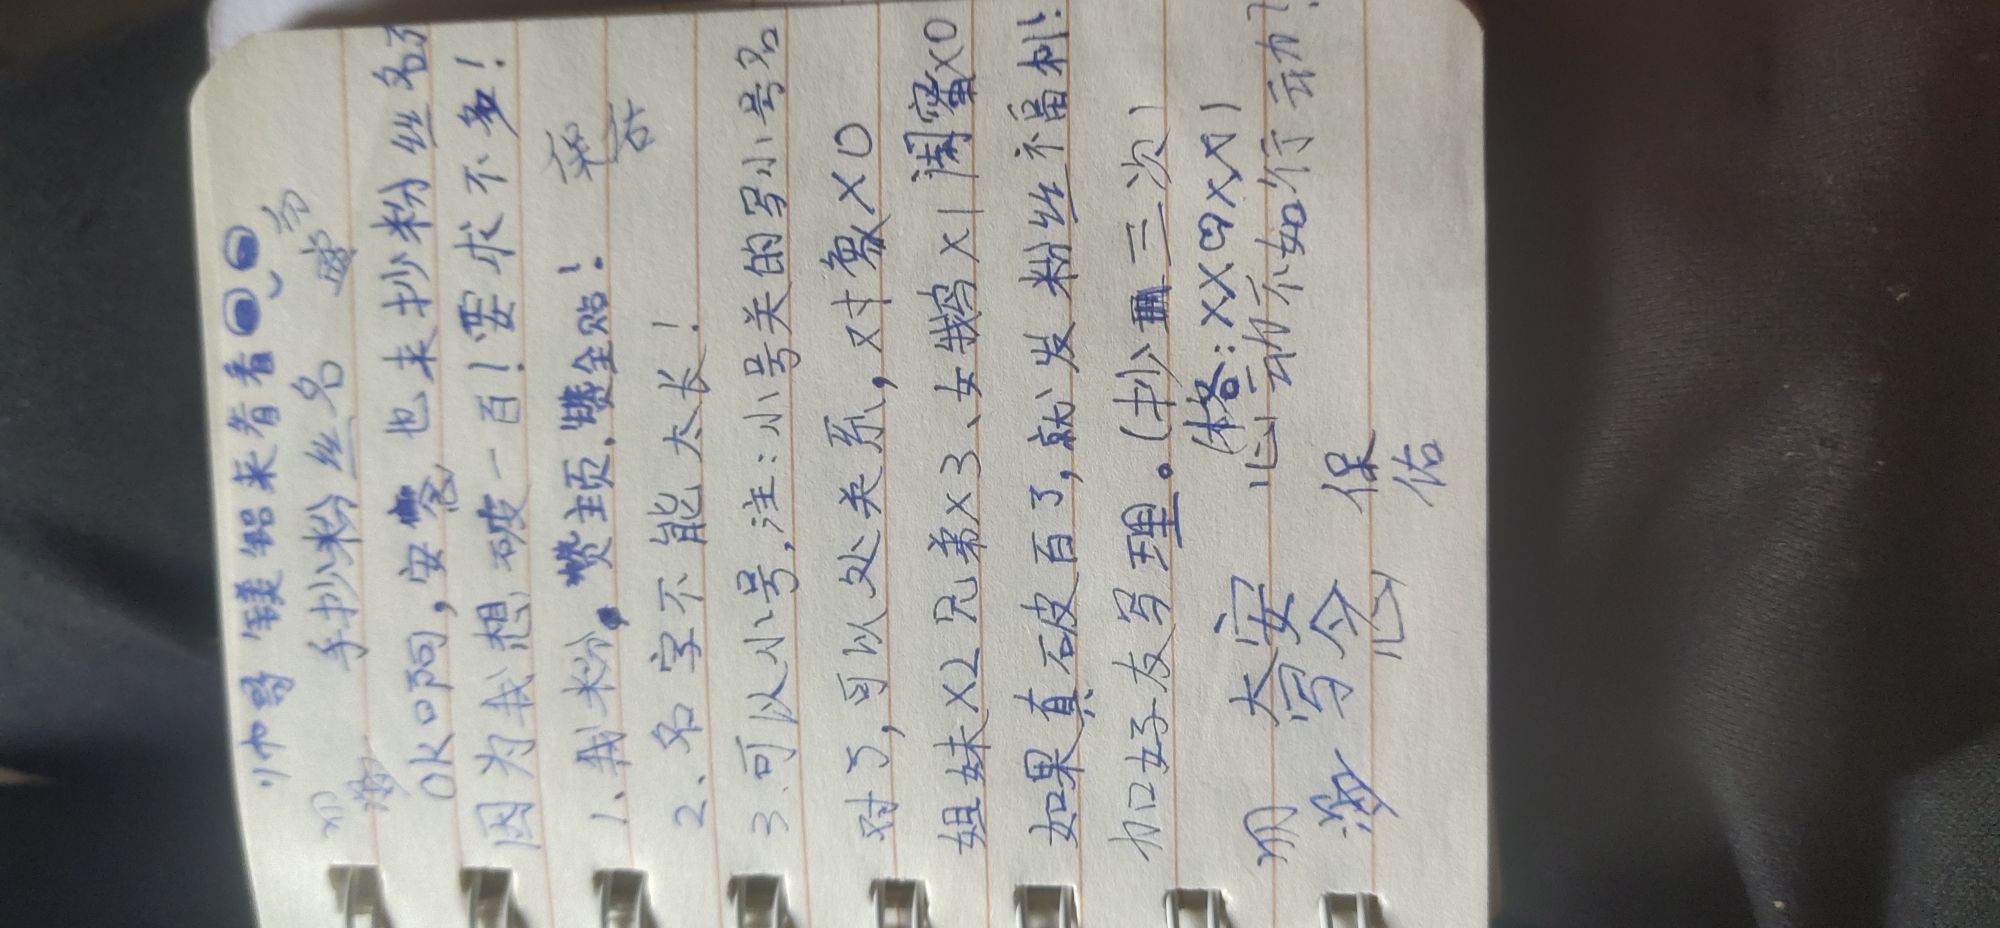 帅哥镁铝来看看
手抄粉丝名
OK啊,安也来抄粉丝名了
因为我想破一百!要求不多!
1、我粉,赞主页,赞全贴!
2、名字不能太长!
3.可以小号,注:小号关的写小号名
对了,可以处关系,对象X0
姐妹X2兄弟X3、女我妈X1闺蜜X0
如果真破百了,就发粉丝福利!
加好友写理。(抄三次)
(格:XX9XX)
心动不如行动?
勿盗
大写
安念
保佑